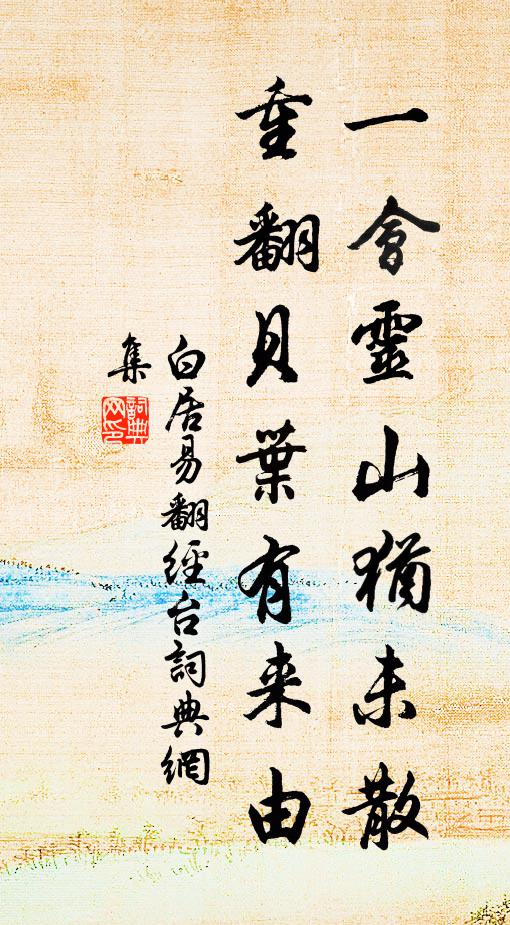 一會靈山猶未散
重翻貝葉有来由
白居易翻經台詞典網
集
詞典
网印